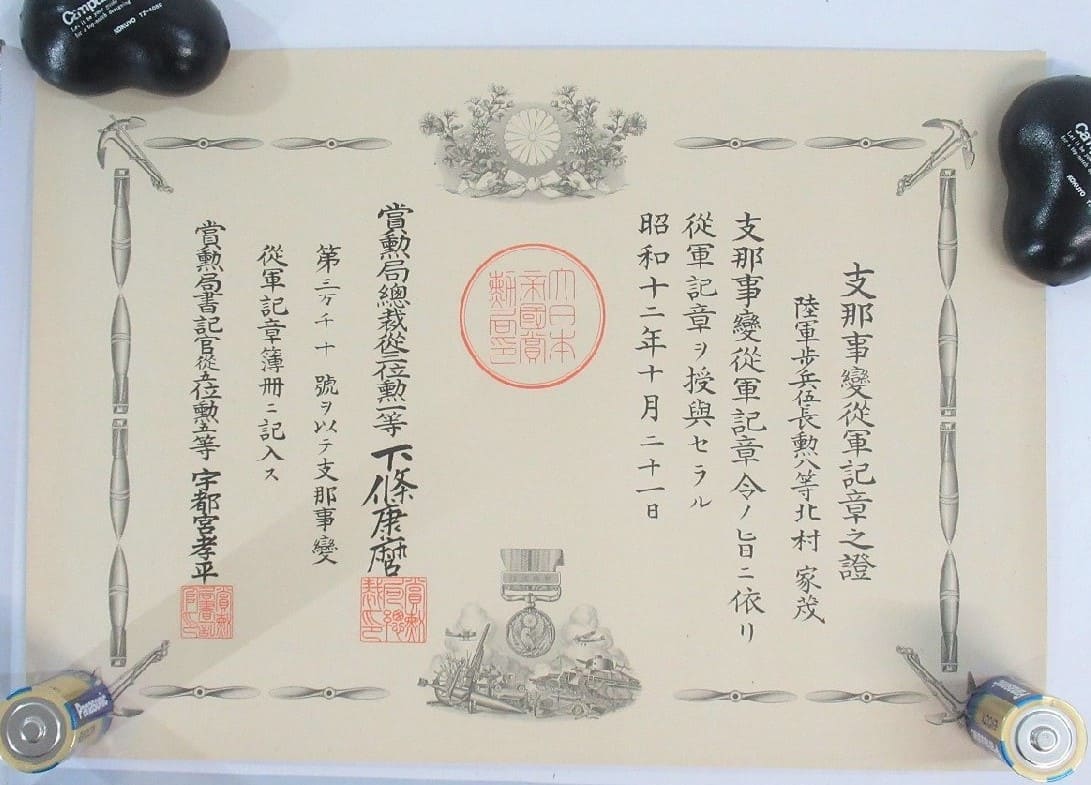 支那事變從軍記章之證
陸軍步兵伍長勳八等北村 家茂
支那事變從軍記章令ノ旨ニ依リ
從軍記章ヲ授與セラル
昭和十二年十月二十一日
大日本
帝國賞
勳局印
賞勳局總裁從三位勳一等 下條康麿
第三万千十號ヲ以テ支那事變
從軍記章簿冊ニ記入ス
賞勳局書記官從五位勳五等 宇都宮孝平
KOKUYO
KOKUYO
Panasonic